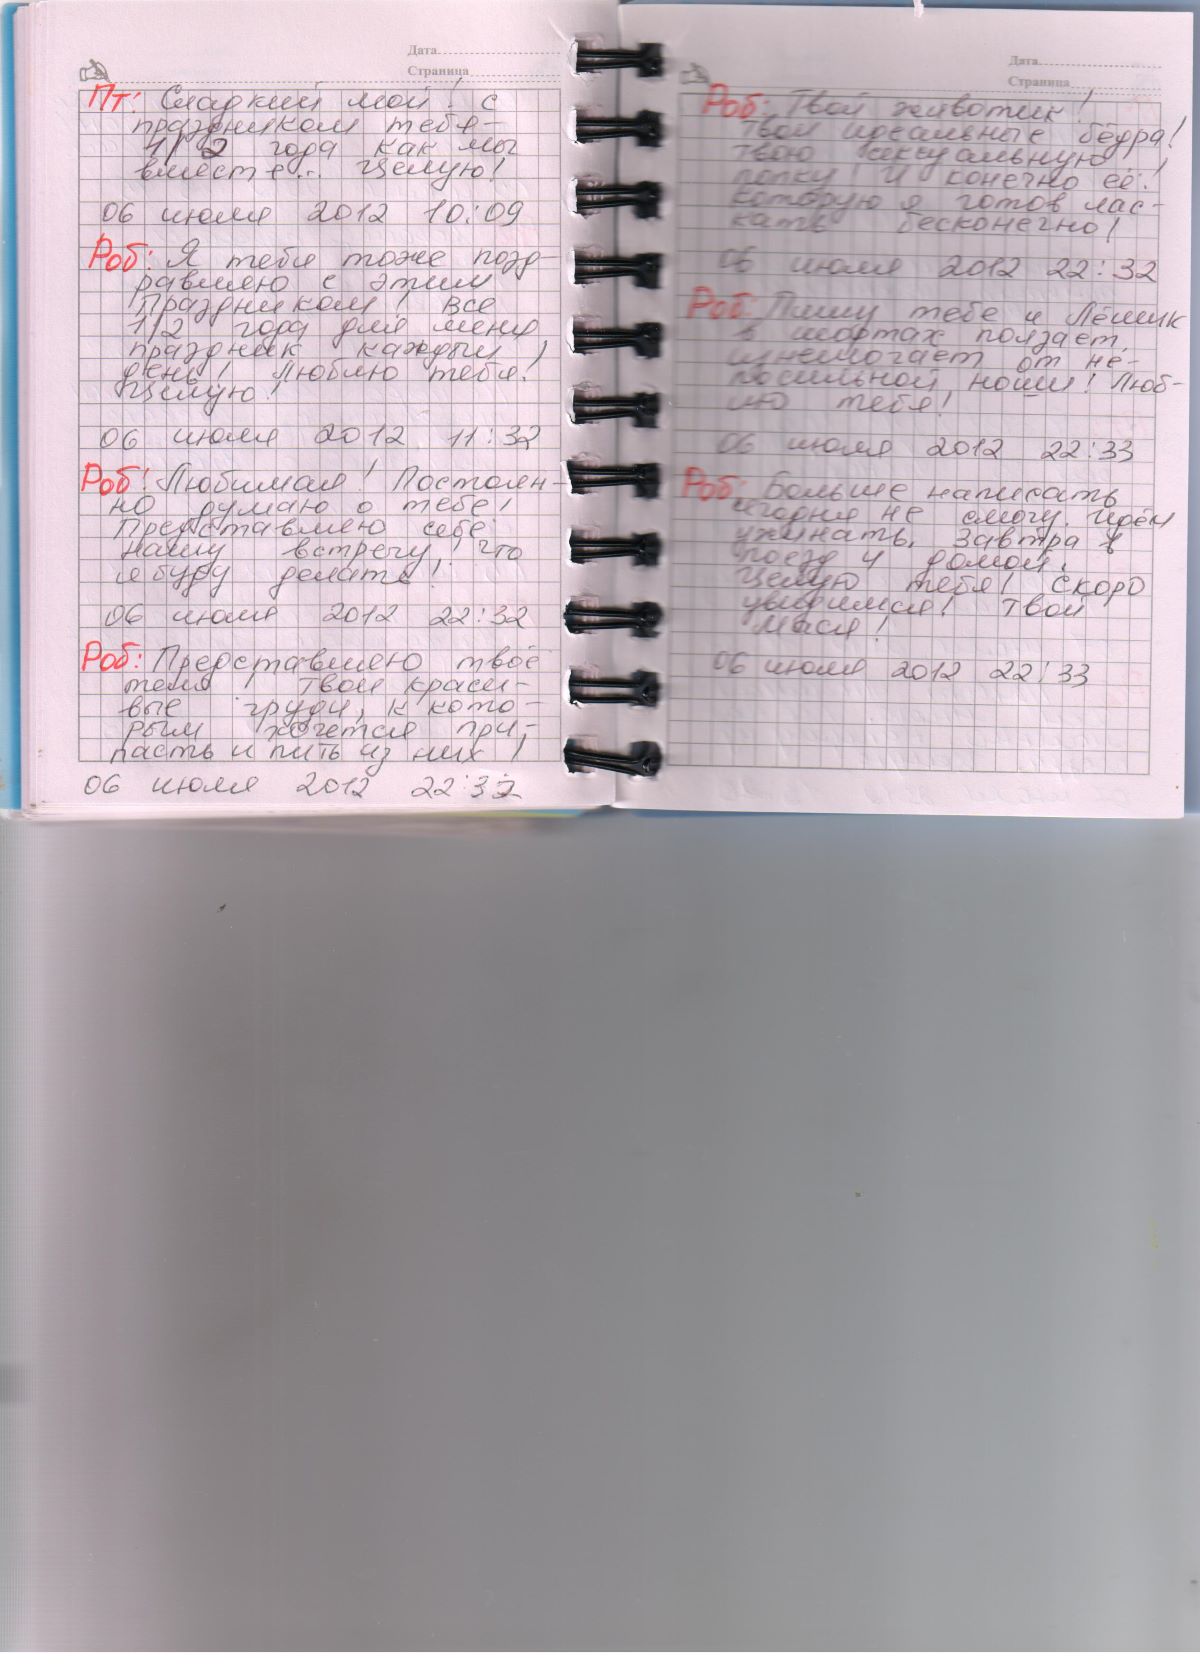 Дата
Страница
Пт: Сладкий мой! с
праздником тебя-
1/2 года как мы
вместе... Целую!
06 июля 2012 10:09
Роб: Я тебя тоже позд-
равляю с этим
праздником! Все
1/2 года для меня
праздник каждый
день! Люблю тебя!
Целую!
06 июля 2012 11:32
Роб: Любимая! Постоян-
но думаю о тебе!
Представляю себе
нашу встречу! Что
я буду делать!
06 июля 2012 22:32
Роб: Представляю твоё
тело! Твои краси-
вые груди, к кото-
рым хочется при-
пасть и пить из них!
06 июля 2012 22:32
Дата
Страница
Роб: Твой животик!
Твои идеальные бёдра!
Твою сексуальную
попку! И конечно её!
Которую я готов лас-
кать бесконечно!
06 июля 2012 22:32
Роб: Пишу тебе и Лёшик
в шортах ползает,
изнемогает от не-
посильной ноши! Люб-
лю тебя!
06 июля 2012 22:33
Роб: Больше написать
сегодня не смогу. Идём
ужинать. Завтра в
поезд и домой.
Целую тебя! Скоро
увидимся! Твой
Мася!
06 июля 2012 22:33